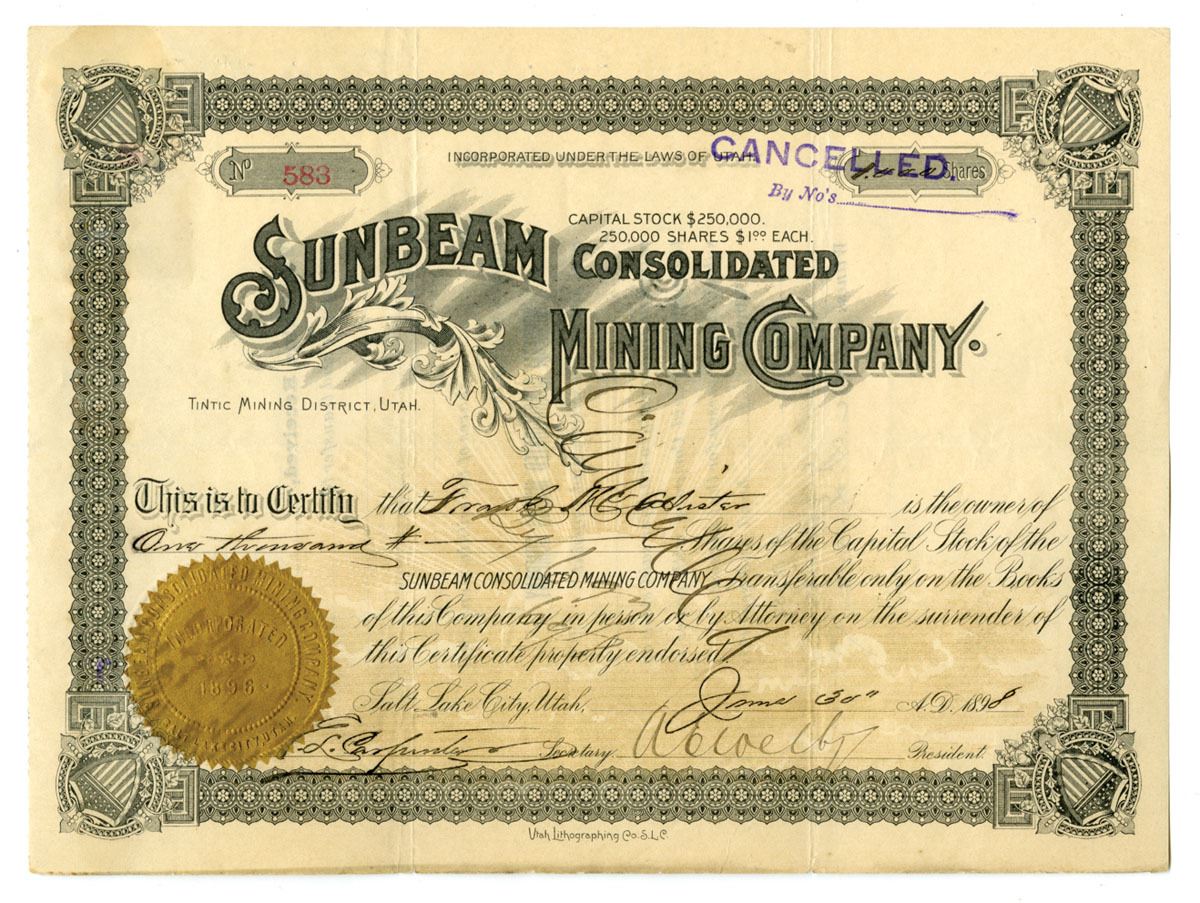 No 583
INCORPORATED UNDER THE LAWS OF UTAH.
CANCELLED.
Shares
By No's
CAPITAL STOCK $250,000.
250,000 SHARES $1.00 EACH.
SUNBEAM CONSOLIDATED
MINING COMPANY.
TINTIC MINING DISTRICT, UTAH.
This is to Certify that Frank McAllister is the owner of
One thousand Shares of the Capital Stock of the
SUNBEAM CONSOLIDATED MINING COMPANY Transferable only on the Books
of this Company in person or by Attorney on the surrender of
this Certificate properly endorsed.
CONSOLIDATED MINING COMPANY
INCORPORATED
1896
Salt Lake City, Utah, June 30" A.D. 1898
L. Carpenter Secretary. President.
Utah Lithographing Co. S.L.C.